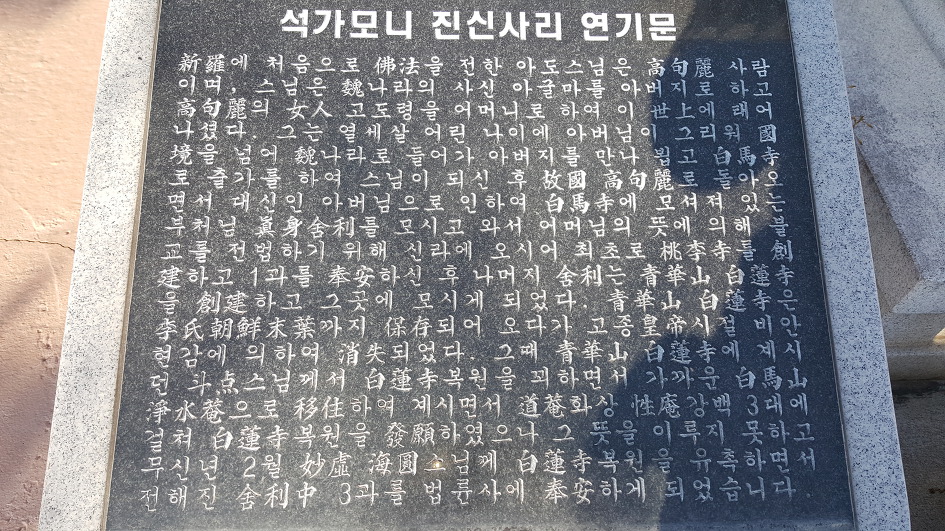 석가모니 진신사리 연기문
新羅에 처음으로 佛法을 전한 아도스님은 高句麗 사람
이며, 스님은 魏나라의 사신 아굴마를 아버지로 하고
高句麗의 女人 고도령을 어머니로 하여 이 世上에 태어
나셨다. 그는 열세살 어린 나이에 아버님이 그리워 國
境을 넘어 魏나라로 들어가 아버지를 만나 뵙고 白馬寺
로 출가를 하여 스님이 되신 후 故國 高句麗로 돌아오
면서 대신인 아버님으로 인하여 白馬寺에 모셔져 있는
부처님 眞身舍利를 모시고 와서 어머님의 뜻에 의해 불
교를 전법하기 위해 신라에 오시어 최초로 桃李寺를 創
建하고 1과를 奉安하신 후 나머지 舍利는 青華山 白蓮寺
을 創建하고 그곳에 모시게 되었다. 青華山 白蓮寺은
李氏朝鮮末葉까지 保存되어 오다가 고종皇帝시절 비안
현감에 의하여 消失되었다. 그때 青華山 白蓮寺에 계시
던 斗点스님께서 白蓮寺복원을 꾀하면서 가까운 白馬山
淨水菴으로 移住하여 계시면서 道菴화상 性庵강백 3대에
걸쳐 白蓮寺복원을 發願하였으나 그 뜻을 이루지 못하고
무신년 2월 妙虛 海圓스님께 白蓮寺복원을 유촉하면서
전해진 舍利中 3과를 법륜사에 奉安하게 되었습니다.